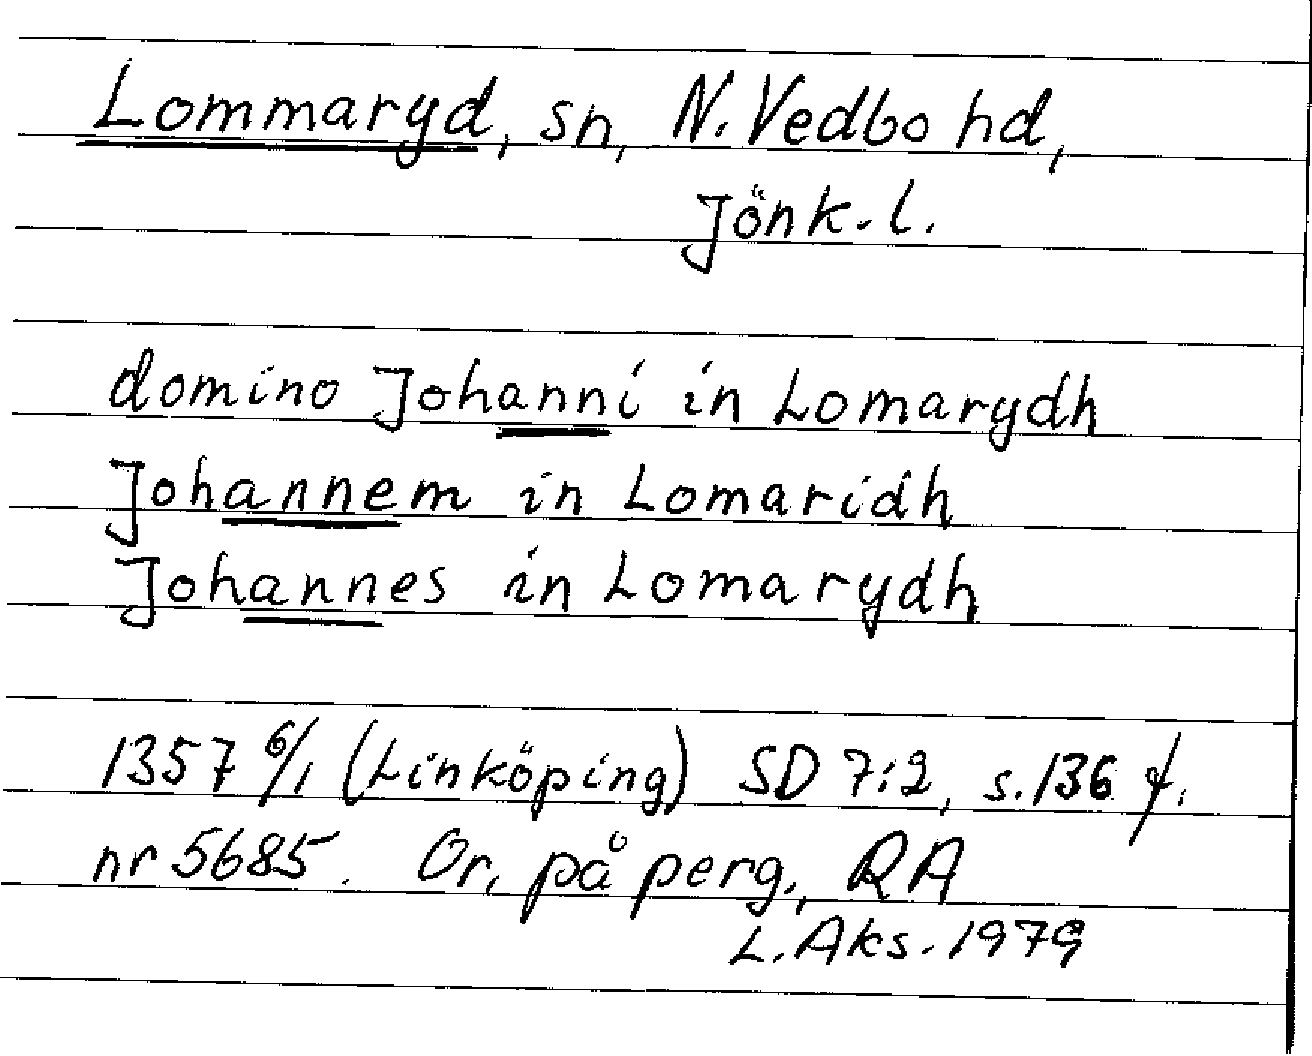 Lommaryd, sn, N. Vedbo hd,
Jönk. l.
domino Johanni in Lomarydh
Johannem in Lomaridh
Johannes in Lomarydh
1357 6/1 (Linköping) SD 7:2, s. 136 f.
nr 5685. Or, på perg., RA
L. Aks. 1979